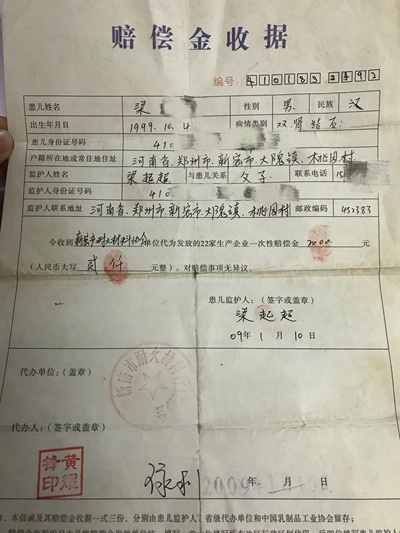 赔偿金收据
编号: 410183
患儿姓名 梁 性别 男 民族 汉
出生年月日 1999.10.4 病情类别 双肾结石
患儿身份证号码 410
户籍所在地或常住地住址 河南省郑州市新密市大隗镇 桃园村
监护人姓名 梁起超 与患儿关系 父子 联系电话 15
监护人身份证号码 410
监护人联系地址 河南省郑州市新密市大隗镇 桃园村 邮政编码 452383
今收到 新密市耐火材料协会 单位代为发放的22家生产企业一次性赔偿金 2000 元
(人民币大写 贰仟 元整)。对赔偿事项无异议。
患儿监护人:(签字或盖章)
梁起超
09年1月10日
代办单位:(盖章)
新密市耐火材料
代办人:(签字或盖章)
黄耀锋印
2009年 月 日
1、本信函及其赔偿金收据一式三份,分别由患儿监护人、省级代办单位和中国乳制品工业协会留存;